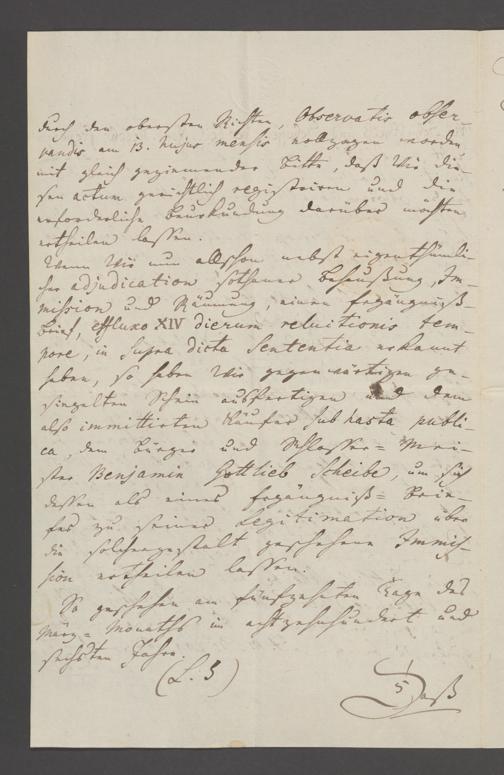 durch den obersten Richter, Observatis obser-
vandis am 13. hujus mensis vollzogen worden
mit gleich geziemender Bitte, daß Wir die-
sen actum gerichtlich registriren und die
erforderliche Beurkundung darüber möchten
ertheilen lassen.
Wenn Wir nun allschon nebst eigenthümli-
cher adjudication sothaner Behaußung, Im-
mission und Räumung, einen Ergängniß-
brief, effluxo XIV dierum reluitionis tem-
pore, in supra dicta Sententia erkannt
haben, so haben Wir gegenwärtigen ge-
siegelten Schein ausfertigen und dem
also immittirten Käufer sub hasta publi-
ca, dem Bürger und Schlosser= Mei-
ster Benjamin Gottlieb Scheibe, um sich
dessen als eines Ergängniß= Brie-
fes zu seiner Legitimation über
die solchergestalt geschehene Immis-
sion ertheilen lassen.
So geschehen am fünfzehnten Tage des
März= Monaths im achtzehnhundert und
sechsten Jahre.
(L. S)
Daß